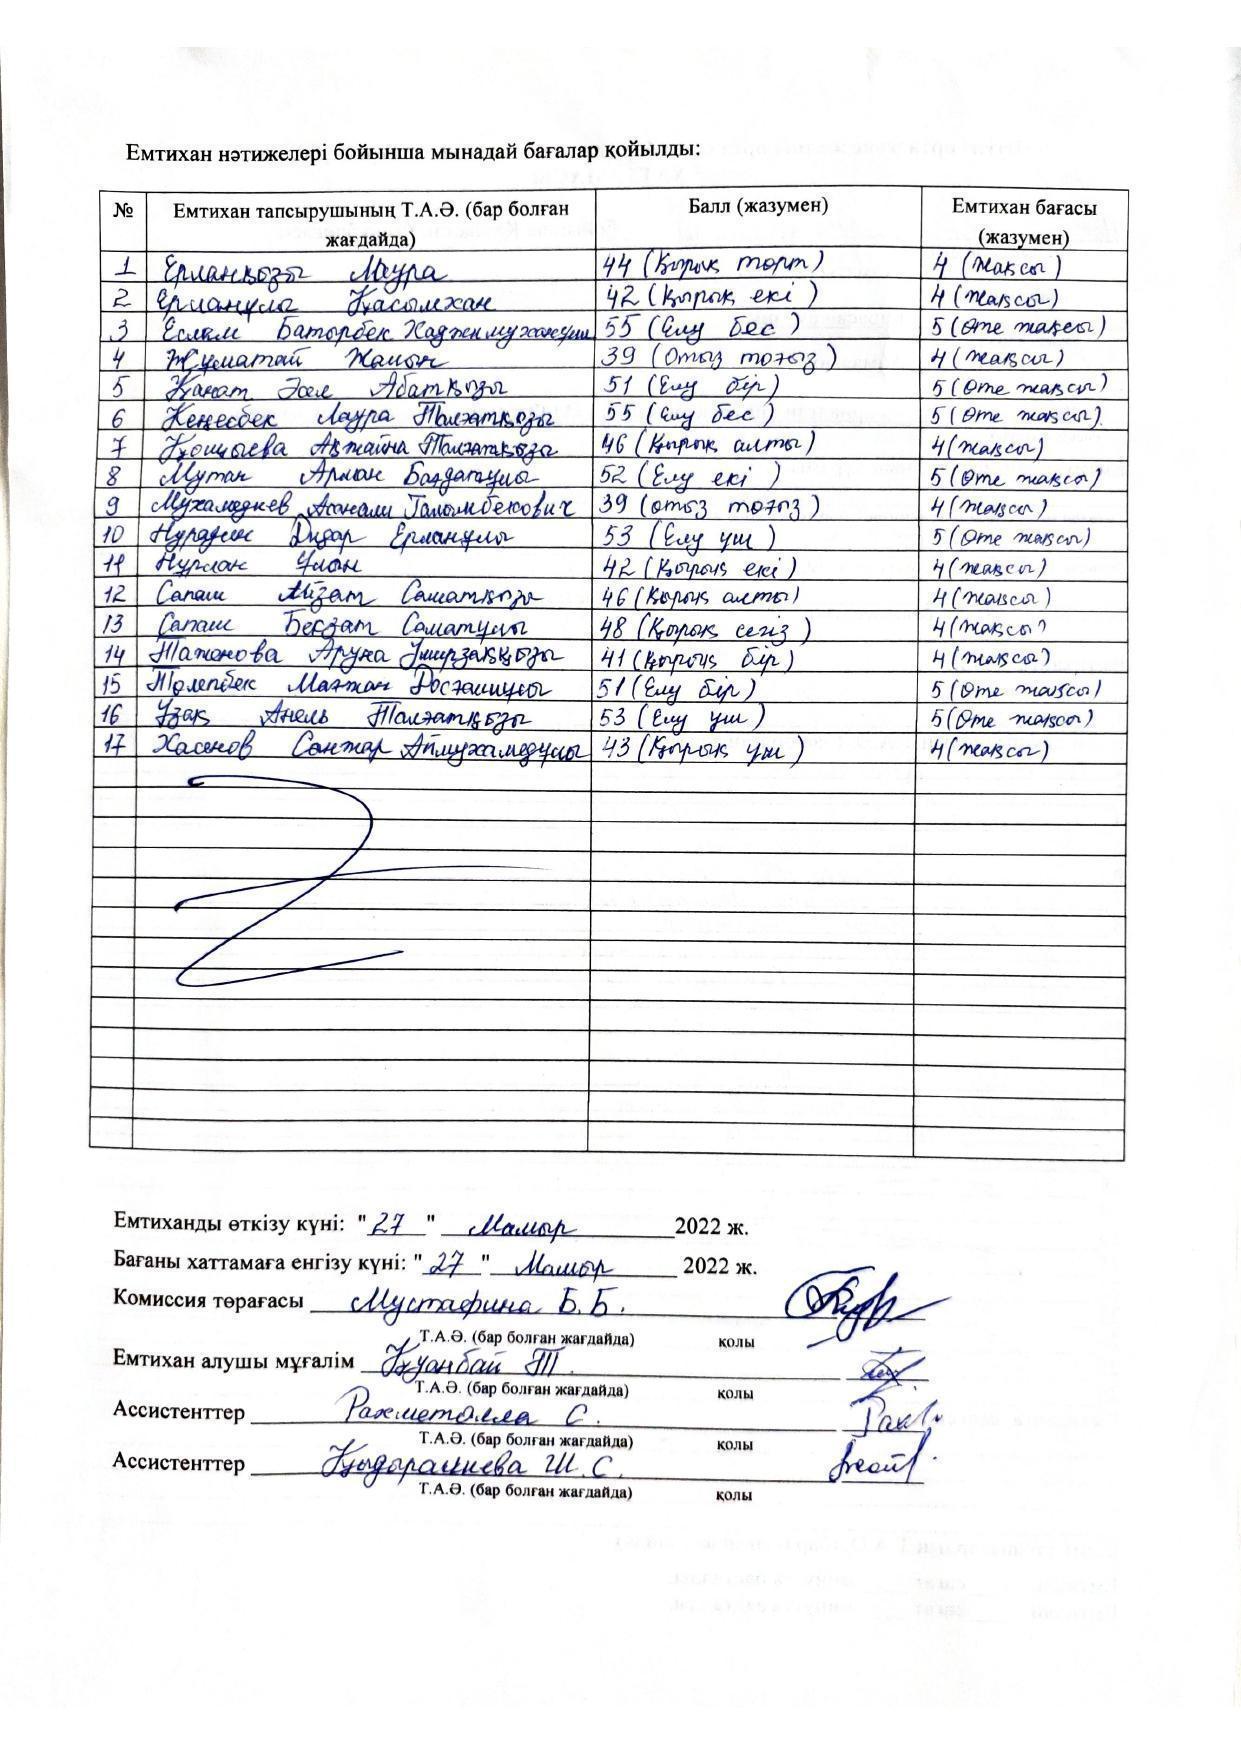 Емтихан нәтижелері бойынша мынадай бағалар қойылды:
№ Емтихан тапсырушының Т.А.Ә. (бар болған жағдайда) Балл (жазумен) Емтихан бағасы (жазумен)
1 Ерланқызы Лаура 44 (Қырық төрт) 4 (жақсы)
2 Ерланұлы Қасымхан 42 (Қырық екі) 4 (жақсы)
3 Еслям Батырбек 55 (Елу бес) 5 (Өте жақсы)
4 Жұматай Жалын 39 (Отыз тоғыз) 4 (жақсы)
5 Қанат Әсел Абатқызы 51 (Елу бір) 5 (Өте жақсы)
6 Кеңесбек Лаура Талғатқызы 55 (Елу бес) 5 (Өте жақсы).
7 Ақтайна Талғатқызы 46 (Қырық алты) 4 (жақсы)
8 Мутан Арман Боздатұлы 52 (Елу екі) 5 (Өте жақсы)
9 Мухамедиев Асанали Галымбекович 39 (отыз тоғыз) 4 (жақсы)
10 Нұрадин Дидар Ерланұлы 53 (Елу үш) 5 (Өте жақсы)
11 Нұрлан Ұлан 42 (Қырық екі) 4 (жақсы)
12 Сапаш Айзат Саматқызы 46 (Қырық алты) 4 (жақсы)
13 Сапаш Бекзат Саматұлы 48 (Қырық сегіз) 4 (жақсы)
14 Тапенова Аруна Үмирзаққызы 41 (Қырық бір) 4 (жақсы)
15 Төлепбек Мағжан Досжанұлы 51 (Елу бір) 5 (Өте жақсы)
16 Ұзақ Анель Талғатқызы 53 (Елу үш) 5 (Өте жақсы)
17 Хасенов Санжар Аймухамедұлы 43 (Қырық үш) 4 (жақсы)
Емтиханды өткізу күні: "27" Мамыр 2022 ж.
Бағаны хаттамаға енгізу күні: "27" Мамыр 2022 ж.
Комиссия төрағасы Мустафина Б.Б.
Т.А.Ә. (бар болған жағдайда) қолы
Емтихан алушы мұғалім Қуанбай Т.
Т.А.Ә. (бар болған жағдайда) қолы
Ассистенттер Рахметолла С.
Т.А.Ә. (бар болған жағдайда) қолы
Ассистенттер Қыдыралиева Ш.С.
Т.А.Ә. (бар болған жағдайда) қолы